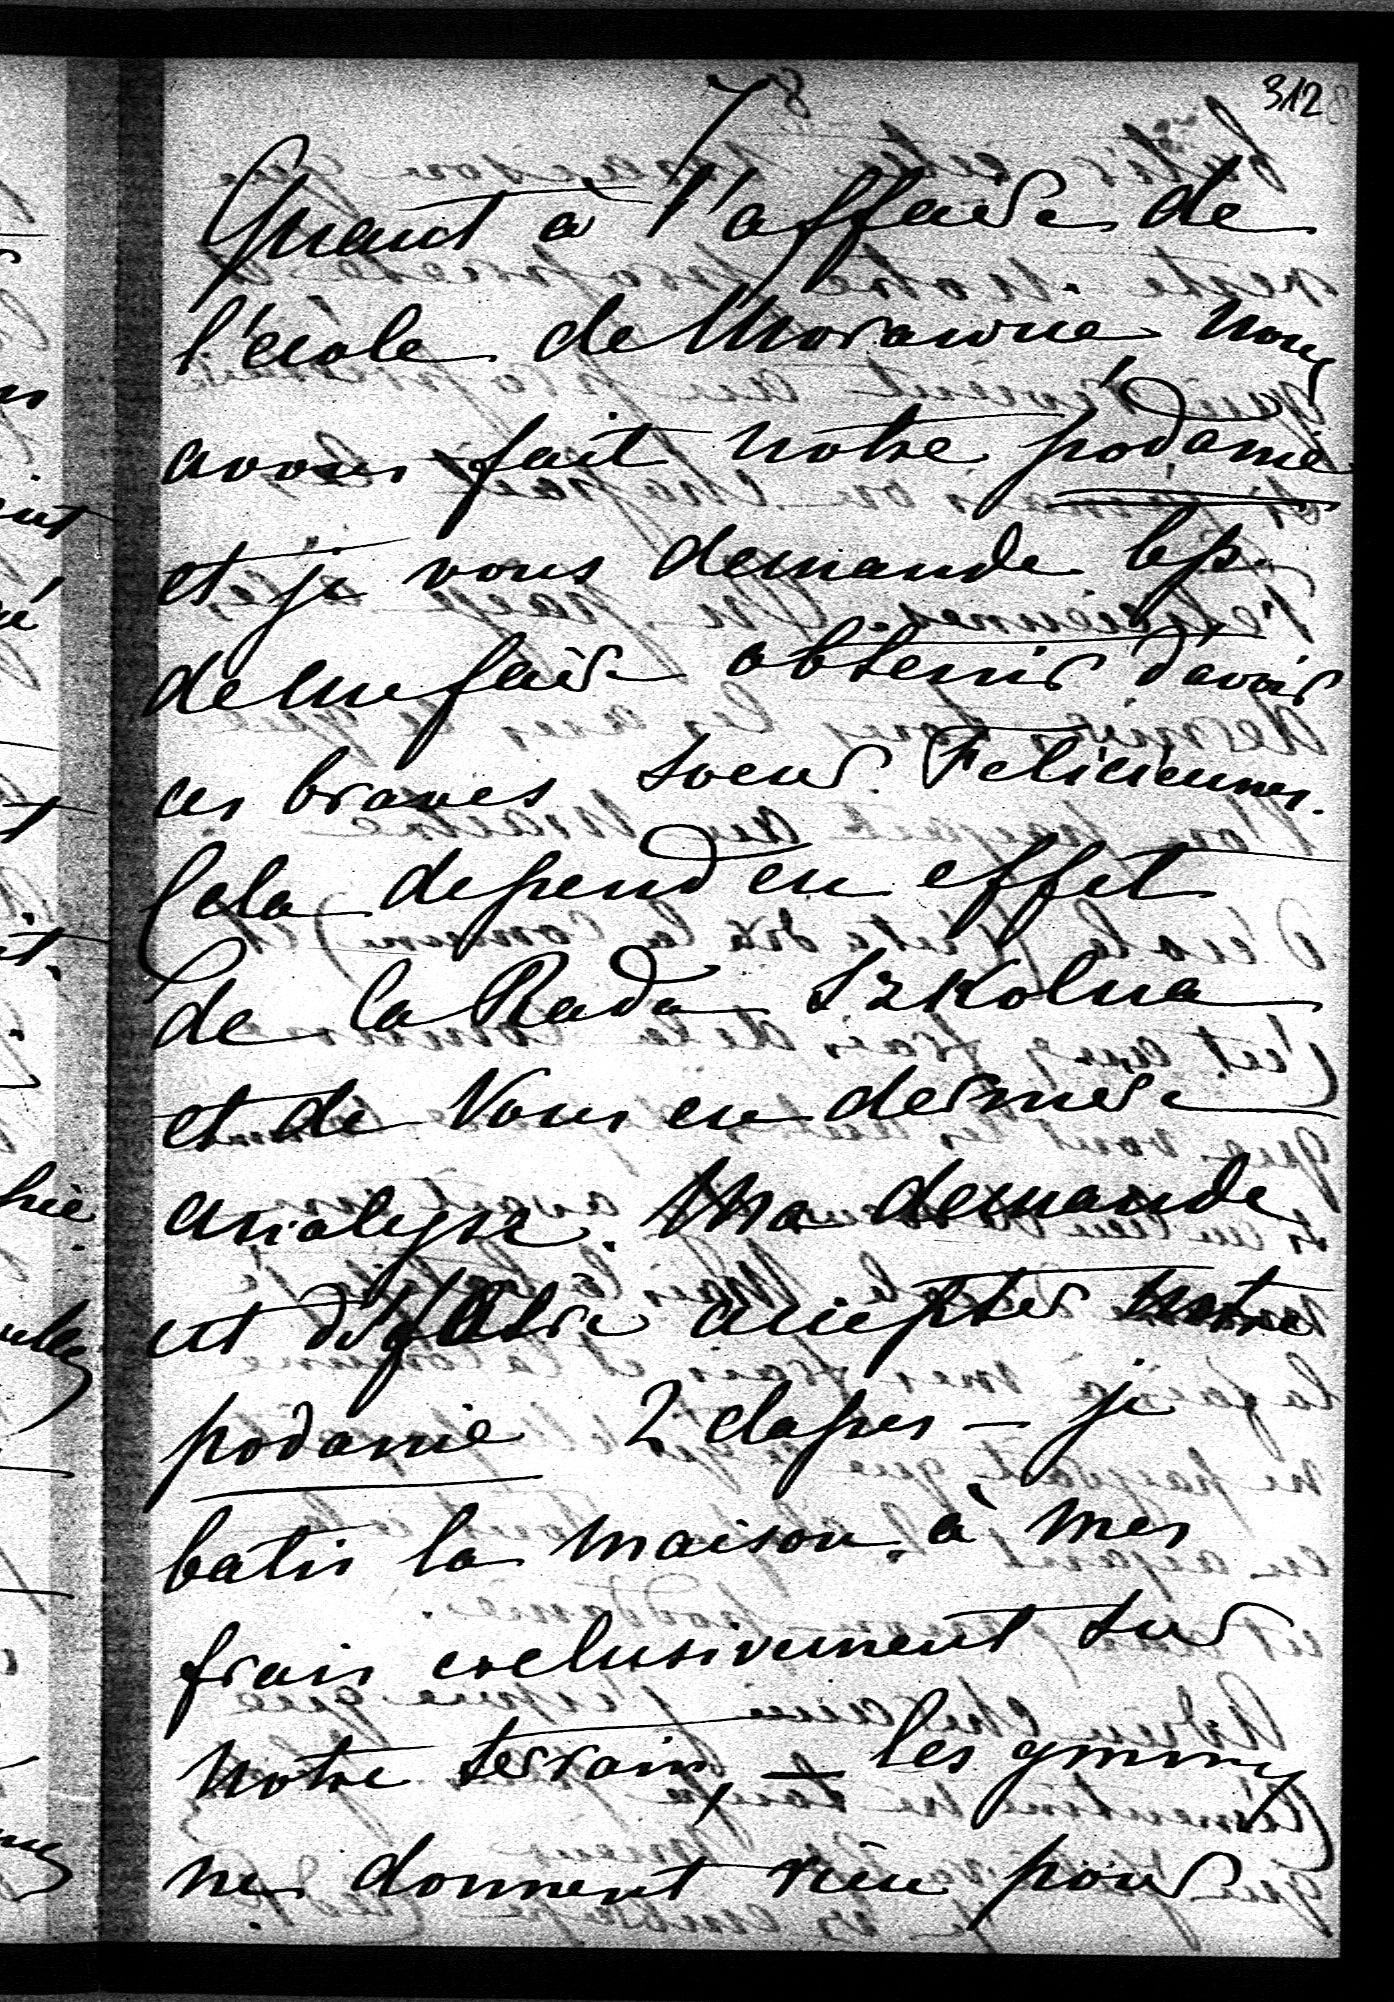 312
7
Quant à l'affaire de
l'école de Morawne nous
avons fait notre podanie
et je vous demande
de me faire obtenir d'avoir
ces braves soeurs Feliciennes.
Cela depend en effet
de la Rada Szkolna
et de Vous en derniere
analyse. Ma demande
est de faire accepter notre
podanie 2 classes — je
batis la maison à mes
frais exclusivement sur
notre terrain, — les gminy
ne donnent rien pour